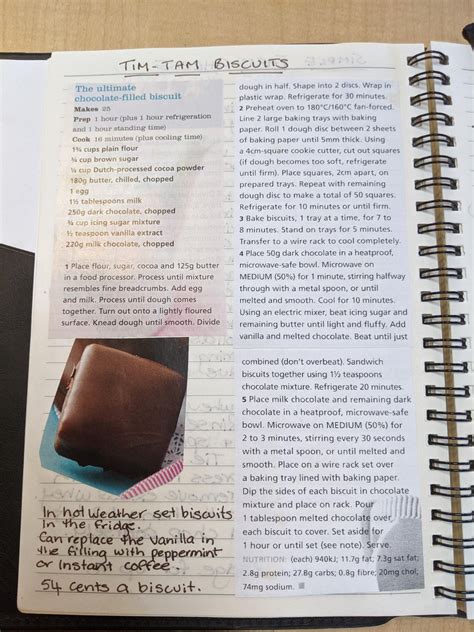 TIM-TAM BISCUITS
The ultimate
chocolate-filled biscuit
Makes 25
Prep 1 hour (plus 1 hour refrigeration
and 1 hour standing time)
Cook 16 minutes (plus cooling time)
1¾ cups plain flour
¾ cup brown sugar
¼ cup Dutch-processed cocoa powder
180g butter, chilled, chopped
1 egg
1½ tablespoons milk
250g dark chocolate, chopped
¾ cup icing sugar mixture
½ teaspoon vanilla extract
220g milk chocolate, chopped
1 Place flour, sugar, cocoa and 125g butter
in a food processor. Process until mixture
resembles fine breadcrumbs. Add egg
and milk. Process until dough comes
together. Turn out onto a lightly floured
surface. Knead dough until smooth. Divide
dough in half. Shape into 2 discs. Wrap in
plastic wrap. Refrigerate for 30 minutes.
2 Preheat oven to 180°C/160°C fan-forced.
Line 2 large baking trays with baking
paper. Roll 1 dough disc between 2 sheets
of baking paper until 5mm thick. Using
a 4cm-square cookie cutter, cut out squares
(if dough becomes too soft, refrigerate
until firm). Place squares, 2cm apart, on
prepared trays. Repeat with remaining
dough disc to make a total of 50 squares.
Refrigerate for 10 minutes or until firm.
3 Bake biscuits, 1 tray at a time, for 7 to
8 minutes. Stand on trays for 5 minutes.
Transfer to a wire rack to cool completely.
4 Place 50g dark chocolate in a heatproof,
microwave-safe bowl. Microwave on
MEDIUM (50%) for 1 minute, stirring halfway
through with a metal spoon, or until
melted and smooth. Cool for 10 minutes.
Using an electric mixer, beat icing sugar and
remaining butter until light and fluffy. Add
vanilla and melted chocolate. Beat until just
combined (don't overbeat). Sandwich
biscuits together using 1½ teaspoons
chocolate mixture. Refrigerate 20 minutes.
5 Place milk chocolate and remaining dark
chocolate in a heatproof, microwave-safe
bowl. Microwave on MEDIUM (50%) for
2 to 3 minutes, stirring every 30 seconds
with a metal spoon, or until melted and
smooth. Place on a wire rack set over
a baking tray lined with baking paper.
Dip the sides of each biscuit in chocolate
mixture and place on rack. Pour
1 tablespoon melted chocolate over
each biscuit to cover. Set aside for
1 hour or until set (see note). Serve.
NUTRITION: (each) 940kJ; 11.7g fat; 7.3g sat fat;
2.8g protein; 27.8g carbs; 0.8g fibre; 20mg chol;
74mg sodium.
In hot weather set biscuits
in the fridge.
Can replace the vanilla in
the filling with peppermint
or instant coffee.
54 cents a biscuit.